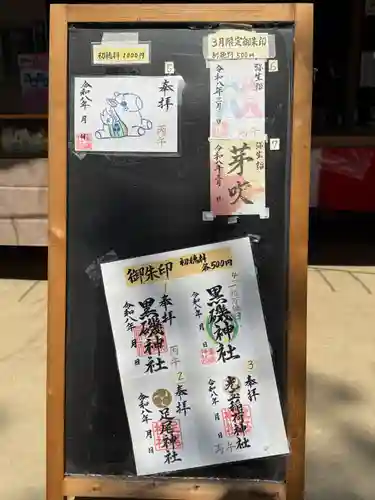 初穂料 1000円
5
奉拝
丙午
令和八年 月 日
3月限定御朱印
初穂料 500円
6
弥生詣
令和八年三月 日
丙午
7
弥生詣
芽吹
令和八年三月 日
御朱印 初穂料 各500円
1
奉拝
黒磯神社
丙午
令和八年 月 日
黒磯神社
令和八年 月 日
2
奉拝
足尾神社
令和八年 月 日
3
奉拝
稲荷神社
丙午
令和八年 月 日